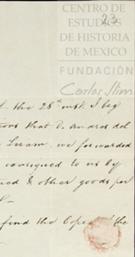 CENTRO DE
ESTUDIOS
DE HISTORIA
DE MEXICO
FUNDACIÓN
Carlos Slim
23
the 28th inst. I beg
that D. Andres del
we forwarded
consigned to us by
& other goods per
find the Copy of the